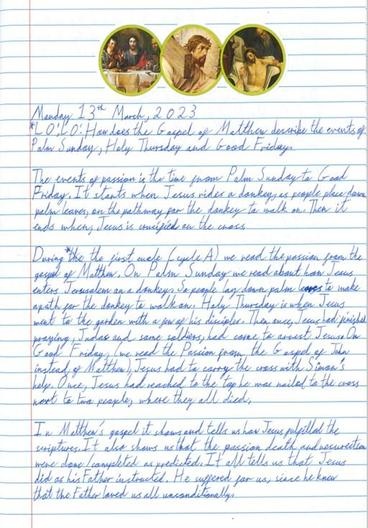 Monday 13th March, 2023
*L.O: L.O: How does the Gospel of Matthew describe the events of
Palm Sunday, Holy Thursday and Good Friday.
The events of passion is the time from Palm Sunday to Good
Friday. It starts when Jesus rides a donkey, as people place down
palm leaves, on the pathway for the donkey to walk on. Then it
ends when, Jesus is crucified on the cross
During *the the first cycle (cycle A) we read the passion from the
gospel of Matthew. On Palm Sunday we read about how Jesus
enters Jerusalem on a donkey. So people lay down palm leaves to make
a path for the donkey to walk on. Holy Thursday is when Jesus
went to the garden with a few of his disciples. Then once, Jesus had finished
praying, Judas and some soldiers, had come to arrest Jesus. On
Good Friday, (we read the Passion from the Gospel of John
instead of Matthew) Jesus had to carry the cross with Simon's
help. Once, Jesus had reached to the top he was nailed to the cross
next to two people, where they all died.
In Matthew's gospel it shows and tells us how Jesus fulfilled the
scriptures. It also shows us that the passion death and resurrection
were done/completed as predicted. It all tells us that Jesus
did as his Father instructed. He suffered for us, since he knew
that the Father loved us all unconditionally.